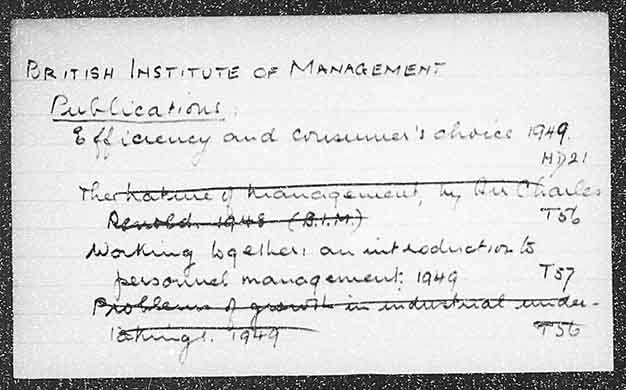 BRITISH INSTITUTE OF MANAGEMENT
Publications.
Efficiency and consumer's choice 1949.
HD21
The nature of management, by Sir Charles
Renold. 1948 (B.I.M.) T56
Working together: an introduction to
personnel management. 1949 T57
Problems of growth in industrial under-
takings. 1949 T56